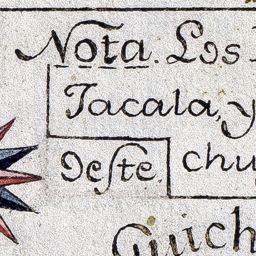 Nota. Los
Tacala, y
Oeste
chu
Guich